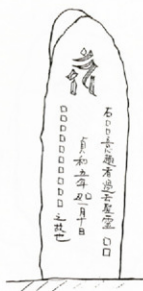 右□□意趣者過去聖霊□□
貞和五年 月十日
□□□□□□□□□□之故也